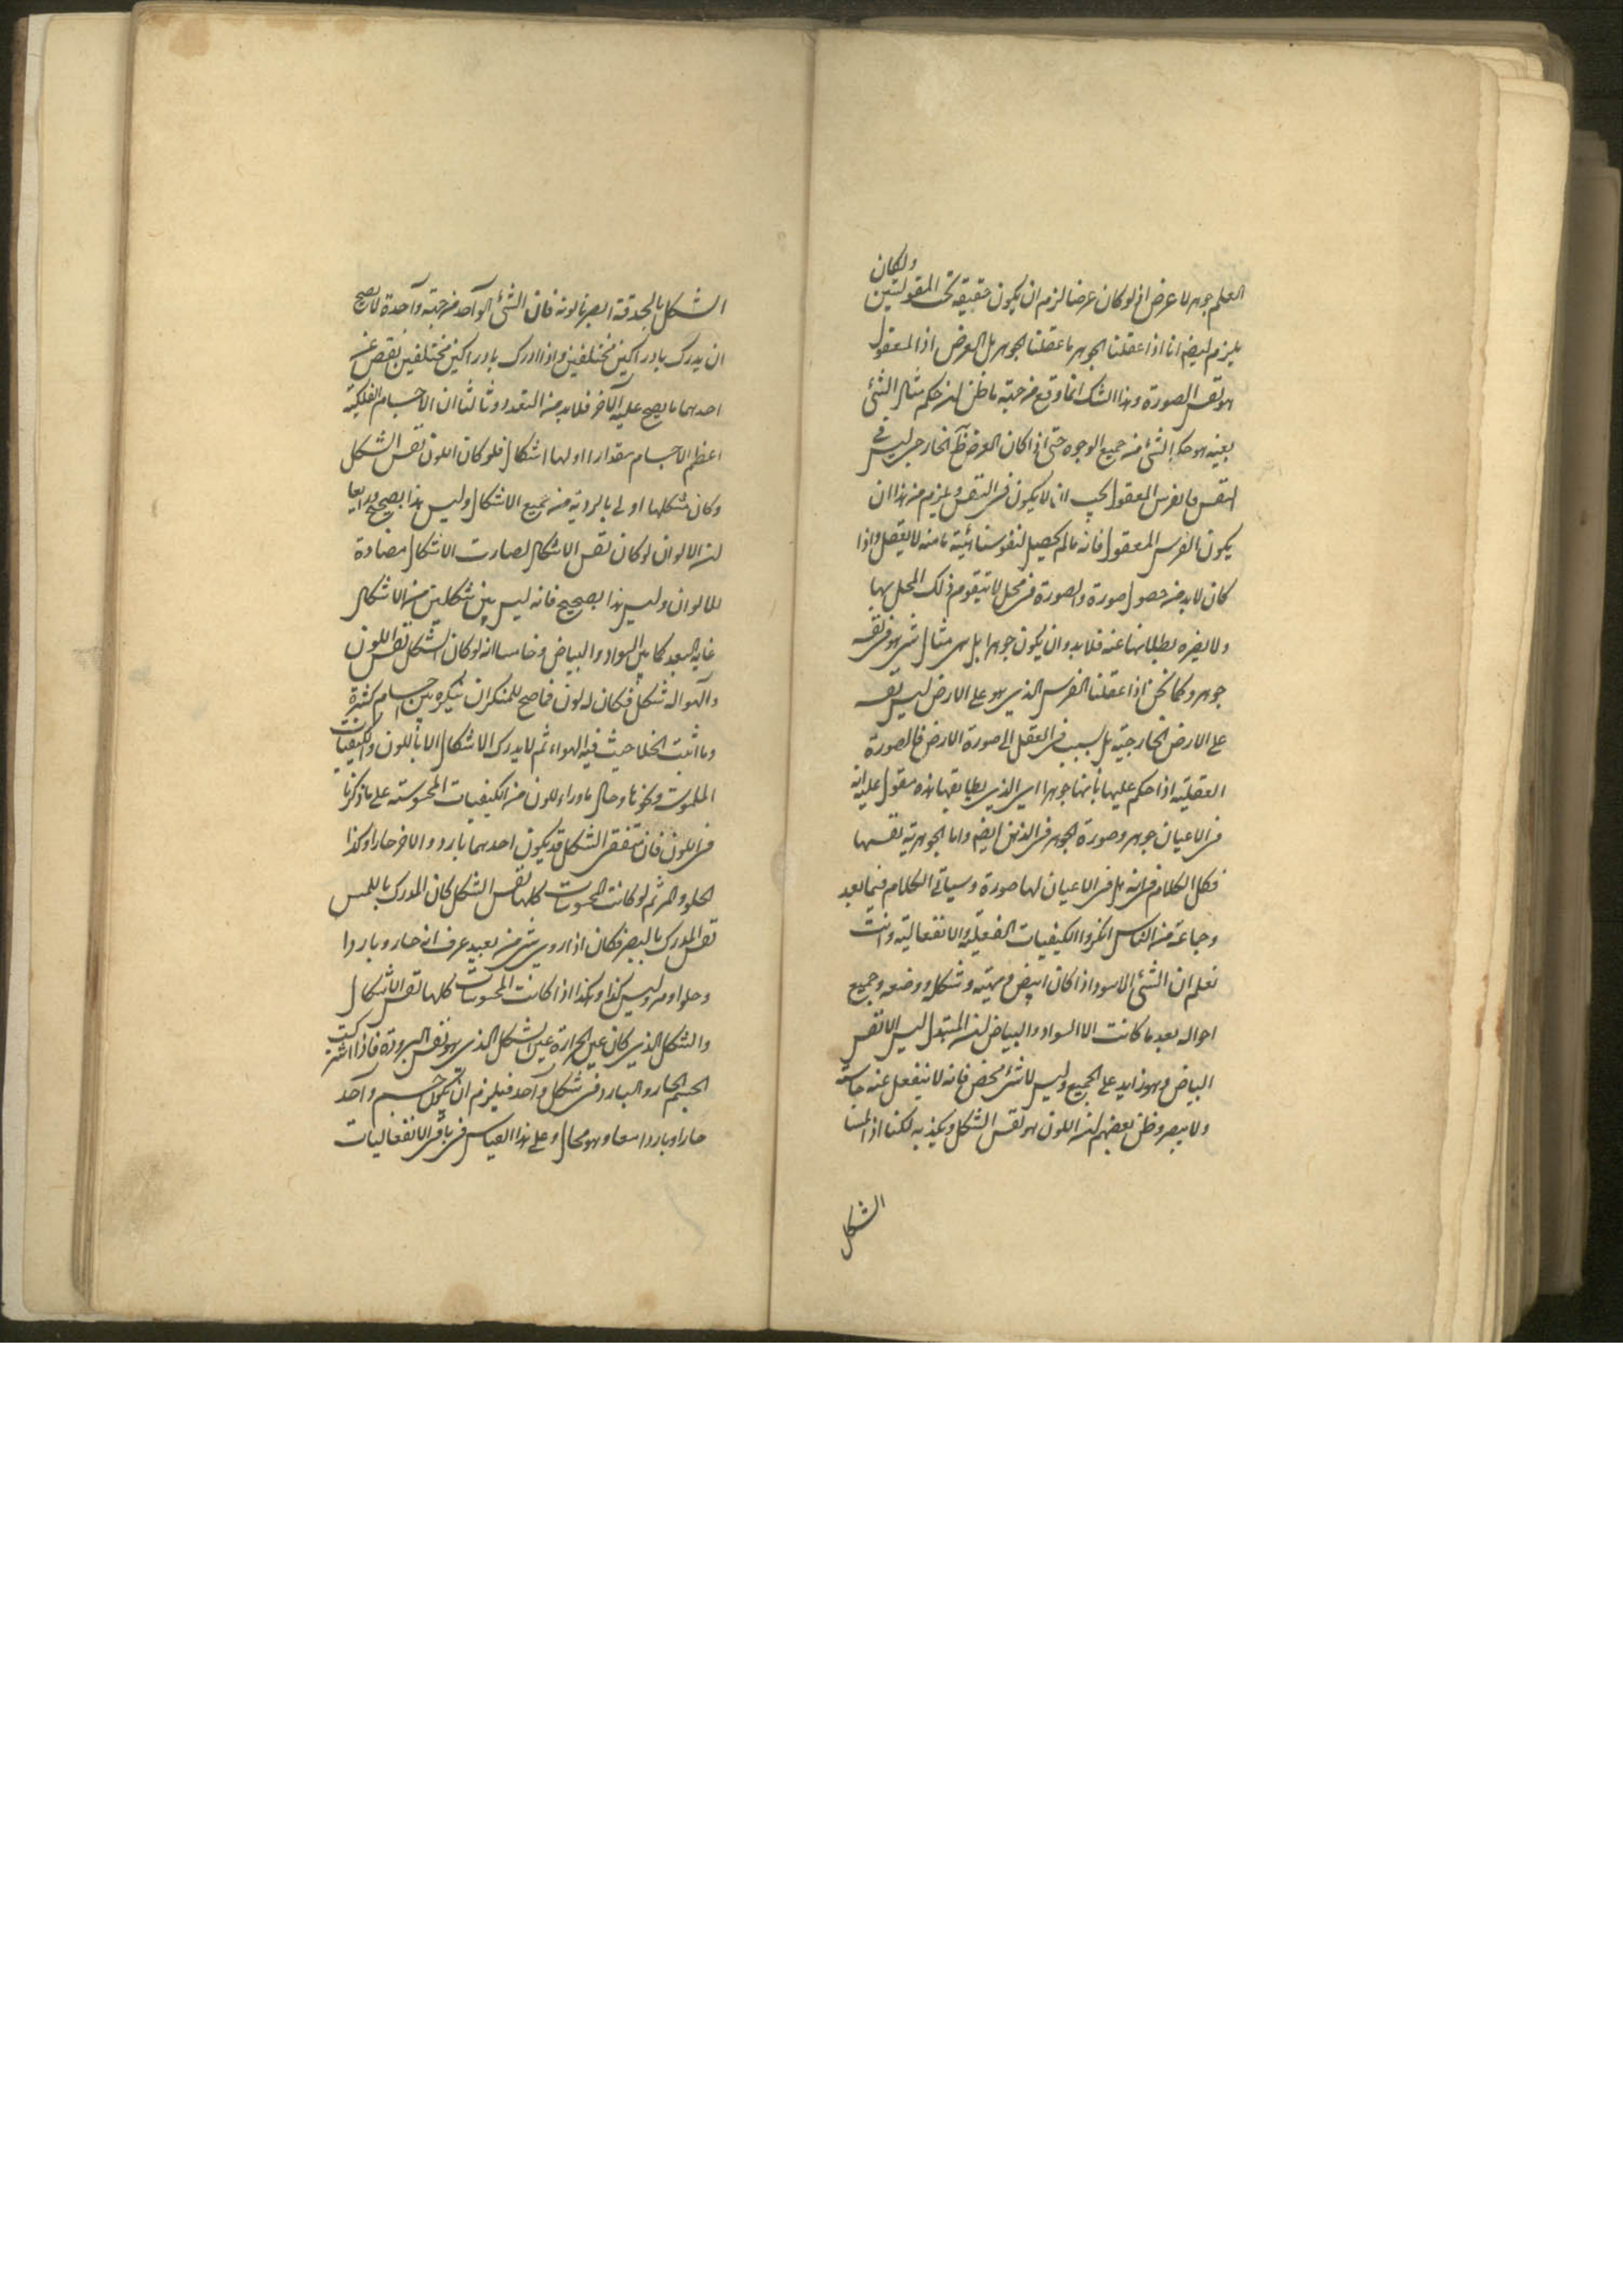 ولكان
العلم جوهر لا عرض اذ لو كان عرضا لزم ان يكون حقيقة تحت المقولتين
يلزم ايضا انا اذا عقلنا الجوهر ما عقلنا الجوهر بل العرض اذ المعقول
هو نفس الصورة وهذا الشك انما وقع من جهة ما ظن ان حكم مثال الشئ
بعينه هو حكم الشئ من جميع الوجوه حتى اذا كان الفرس الخارجى ليس فى
النفس فالفرس المعقول يجب ان لا يكون فى النفس ويلزم من هذا ان
يكون الفرس المعقول فانه ما لم يحصل لنفوسنا هيئة ما منه لا يعقل واذا
كان لابد من حصول صورة والصورة فى محل لا يتقوم ذلك المحل بها
ولا يضره بطلانها عنه فلابد وان يكون جوهرا بل هى مثال شئ هو فى نفسه
جوهر وكما نحن اذا عقلنا الفرس الذى هو على الارض ليس نفسه
على الارض الخارجية بل بسبب فى العقل الى صورة الارض فالصورة
العقلية اذا حكم عليها بأنها جوهر اى الذى يطابقها هذه مقول عليه انه
فى الاعيان جوهر وصورة الجوهر فى الذهن ايضا واما الجوهرية نفسها
فكل الكلام فى انه هل فى الاعيان لها صورة وسيأتى الكلام فيما بعد
وجماعة من الناس انكروا الكيفيات الفعلية والانفعالية وانت
تعلم ان الشئ الاسود اذا كان ابيض ومهيته وشكله ووضعه وجميع
احواله بعد ما كانت الا السواد والبياض ان المتبدل ليس الا نفس
البياض وهو زايد على الجميع وليس لا شئ محض فانه لا ينفعل عنه حاسة
ولا يبصر وظن بعضهم ان اللون هو نفس الشكل ويكذبه لكنا اذ المسنا
الشكل
الشكل بالحدقة ابصرنا لونه فان الشئ الواحد من جهة واحدة لا يصح
ان يدرك بادراكين مختلفين واذا ادرك بادراكين مختلفين نقص عن
احدهما ما يصح على الآخر فلابد من التعدد وثالثا ان الاجسام الفلكية
اعظم الاجسام مقدارا اولها اشكال فلو كان اللون نفس الشكل
وكان شكلها اولى بالرؤية من جميع الاشكال وليس هذا بصحيح ورابعا
ان الالوان لو كان نفس الاشكال لصارت الاشكال مضادة
للالوان وليس هذا بصحيح فانه ليس بين شكلين من الاشكال
غاية البعد كما بين السواد والبياض وخامسا انه لو كان الشكل نفس اللون
والهوا له شكل فكان له لون فما صح للمنكر ان ينكره بين اجسام كثيرة
وما اثبت الخلا حيث فيه الهواء ثم لا يدرك الاشكال الا باللون والكيفيات
الملموسة ونحوها وحال ما وراء اللون من الكيفيات المحسوسة على ما ذكرنا
فى اللون فان متفقى الشكل قد يكون احدهما باردا والاخر حارا وكذا
الحلو والمر ثم لو كانت المحسوسات كلها نفس الشكل كان المدرك باللمس
نفس المدرك بالبصر فكان اذا روى شئ من بعيد عرف انه حار وباردا
وحلو او مر وليس كذا وهكذا اذا كانت المحسوسات كلها نفس الاشكال
والشكل الذى كان عين الحرارة عين الشكل الذى هو نفس البرودة فاذا اشتركت
الجسم الحار والبارد فى شكل واحد فيلزم ان يكون جسم واحد
حارا وباردا معا وهو محال وعلى هذا القياس فى باقى الانفعاليات